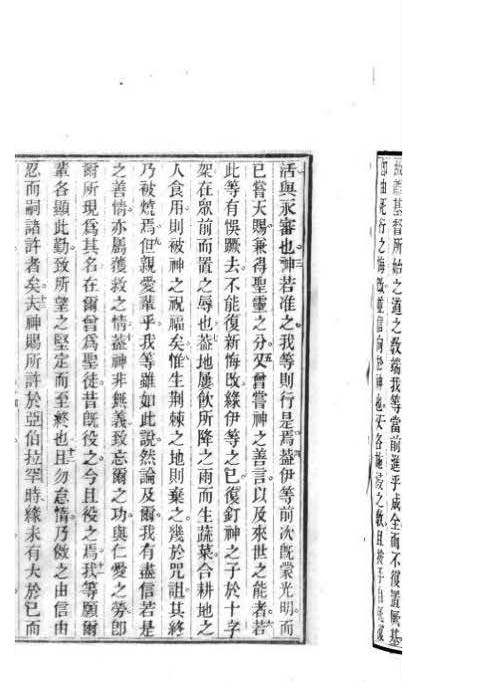 故置基督所始之道之教端我等當前進乎成全而不復置厥基
即由死行之悔改並信向於神也及各施
活與永審也三神若准之我等則行是焉蓋伊等前次旣蒙光明而
已嘗天賜兼得聖靈之分五又曾嘗神之善言以及來世之能者若
此等有悞蹶去不能復新悔改緣伊等之已復釘神之子於十字
架在眾前而置之辱也蓋地屢飲所降之雨而生蔬菜合耕地之
人食用則被神之祝福矣惟生荆棘之地則棄之幾於咒詛其終
乃被燒焉但親愛輩乎我等雖如此說然論及爾我有盡信若是
之善情亦屬獲救之情葢神非無義致忘爾之功與仁愛之勞卽
爾所現為其名在爾曾為聖徒昔旣役之今且役之焉我等願爾
輩各顯此勤致所望之堅定而至終也且勿怠惰乃倣之由信由
忍而嗣諸許者矣夫神賜所許於亞伯拉罕時緣未有大於已而